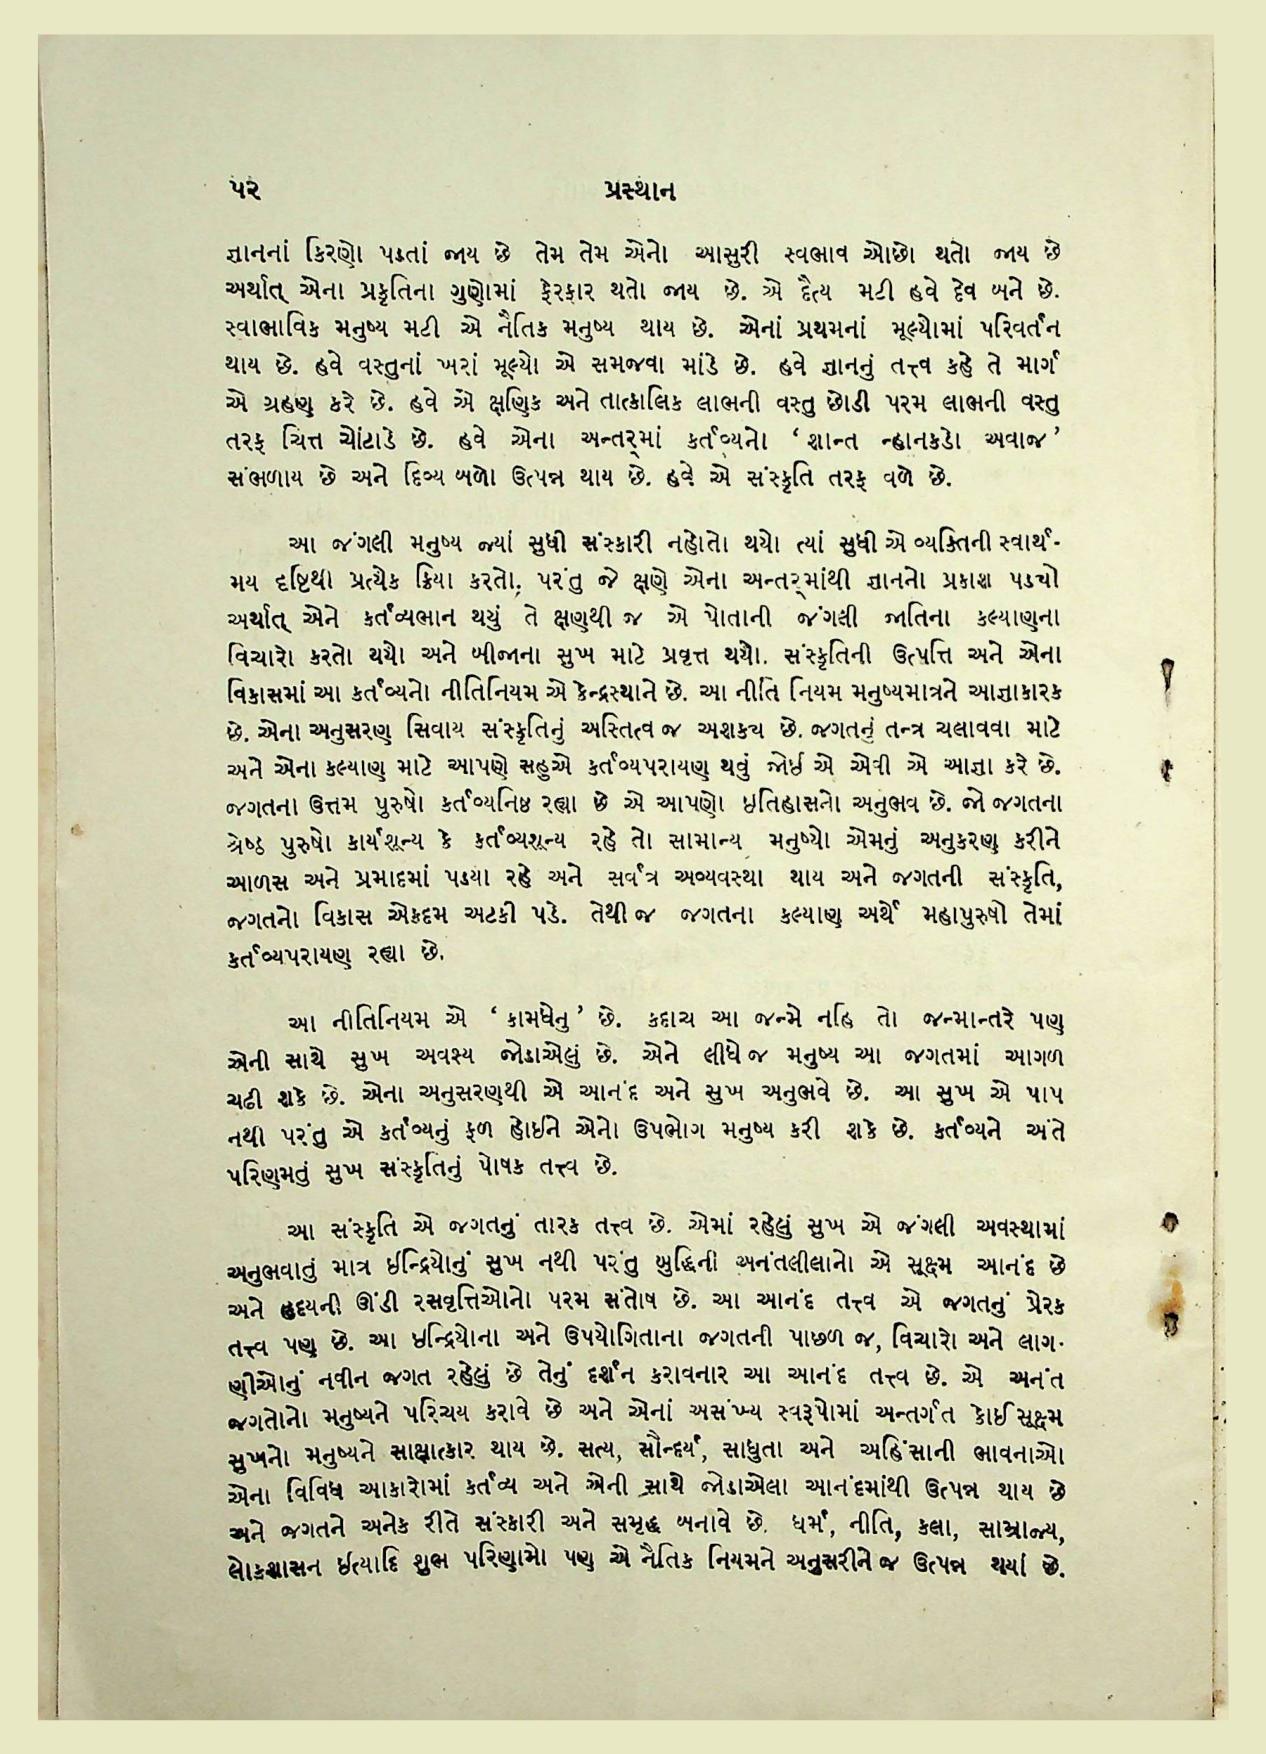 ૫૨ પ્રસ્થાન
જ્ઞાનનાં કિરણો પડતાં જાય છે તેમ તેમ એનો આસુરી સ્વભાવ ઓછો થતો જાય છે
અર્થાત્ એના પ્રકૃતિના ગુણોમાં ફેરફાર થતો જાય છે. એ દૈત્ય મટી હવે દેવ બને છે.
સ્વાભાવિક મનુષ્ય મટી એ નૈતિક મનુષ્ય થાય છે. એનાં પ્રથમનાં મૂલ્યોમાં પરિવર્તન
થાય છે. હવે વસ્તુનાં ખરાં મૂલ્યો એ સમજવા માંડે છે. હવે જ્ઞાનનું તત્ત્વ કહે તે માર્ગ
એ ગ્રહણ કરે છે. હવે એ ક્ષણિક અને તાત્કાલિક લાભની વસ્તુ છોડી પરમ લાભની વસ્તુ
તરફ ચિત્ત ચોંટાડે છે. હવે એના અન્તર્‌માં કર્તવ્યનો ‘ શાન્ત ન્હાનકડો અવાજ ’
સંભળાય છે અને દિવ્ય બળો ઉત્પન્ન થાય છે. હવે એ સંસ્કૃતિ તરફ વળે છે.
આ જંગલી મનુષ્ય જ્યાં સુધી સંસ્કારી નહોતો થયો ત્યાં સુધી એ વ્યક્તિની સ્વાર્થ-
મય દૃષ્ટિથી પ્રત્યેક ક્રિયા કરતો; પરંતુ જે ક્ષણે એના અન્તર્‌માંથી જ્ઞાનનો પ્રકાશ પડ્યો
અર્થાત્ એને કર્તવ્યભાન થયું તે ક્ષણથી જ એ પોતાની જંગલી જાતિના કલ્યાણના
વિચારો કરતો થયો અને બીજાના સુખ માટે પ્રવૃત્ત થયો. સંસ્કૃતિની ઉત્પત્તિ અને એના
વિકાસમાં આ કર્તવ્યનો નીતિનિયમ એ કેન્દ્રસ્થાને છે. આ નીતિ નિયમ મનુષ્યમાત્રને આજ્ઞાકારક
છે. એના અનુસરણ સિવાય સંસ્કૃતિનું અસ્તિત્વ જ અશક્ય છે. જગતનું તન્ત્ર ચલાવવા માટે
અને એના કલ્યાણ માટે આપણે સહુએ કર્તવ્યપરાયણ થવું જોઈએ એવી એ આજ્ઞા કરે છે.
જગતના ઉત્તમ પુરુષો કર્તવ્યનિષ્ઠ રહ્યા છે એ આપણો ઇતિહાસનો અનુભવ છે. જો જગતના
શ્રેષ્ઠ પુરુષો કાર્યશૂન્ય કે કર્તવ્યશૂન્ય રહે તો સામાન્ય મનુષ્યો એમનું અનુકરણ કરીને
આળસ અને પ્રમાદમાં પડ્યા રહે અને સર્વત્ર અવ્યવસ્થા થાય અને જગતની સંસ્કૃતિ,
જગતનો વિકાસ એકદમ અટકી પડે. તેથી જ જગતના કલ્યાણ અર્થે મહાપુરુષો તેમાં
કર્તવ્યપરાયણ રહ્યા છે.
આ નીતિનિયમ એ ‘ કામધેનુ ’ છે. કદાચ આ જન્મે નહિ તો જન્માન્તરે પણ
એની સાથે સુખ અવશ્ય જોડાએલું છે. એને લીધે જ મનુષ્ય આ જગતમાં આગળ
ચઢી શકે છે. એના અનુસરણથી એ આનંદ અને સુખ અનુભવે છે. આ સુખ એ પાપ
નથી પરંતુ એ કર્તવ્યનું ફળ હોઈને એનો ઉપભોગ મનુષ્ય કરી શકે છે. કર્તવ્યને અંતે
પરિણમતું સુખ સંસ્કૃતિનું પોષક તત્ત્વ છે.
આ સંસ્કૃતિ એ જગતનું તારક તત્ત્વ છે. એમાં રહેલું સુખ એ જંગલી અવસ્થામાં
અનુભવાતું માત્ર ઈન્દ્રિયોનું સુખ નથી પરંતુ બુદ્ધિની અનંતલીલાનો એ સૂક્ષ્મ આનંદ છે
અને હૃદયની ઊંડી રસવૃત્તિઓનો પરમ સંતોષ છે. આ આનંદ તત્ત્વ એ જગતનું પ્રેરક
તત્ત્વ પણ છે. આ ઇન્દ્રિયોના અને ઉપયોગિતાના જગતની પાછળ જ, વિચારો અને લાગ-
ણીઓનું નવીન જગત રહેલું છે તેનું દર્શન કરાવનાર આ આનંદ તત્ત્વ છે. એ અનંત
જગતોનો મનુષ્યને પરિચય કરાવે છે અને એનાં અસંખ્ય સ્વરૂપોમાં અન્તર્ગત કોઈ સૂક્ષ્મ
સુખનો મનુષ્યને સાક્ષાત્કાર થાય છે. સત્ય, સૌન્દર્ય, સાધુતા અને અહિંસાની ભાવનાઓ
એના વિવિધ આકારોમાં કર્તવ્ય અને એની સાથે જોડાએલા આનંદમાંથી ઉત્પન્ન થાય છે
અને જગતને અનેક રીતે સંસ્કારી અને સમૃદ્ધ બનાવે છે. ધર્મ, નીતિ, કલા, સામ્રાજ્ય,
લોકશાસન ઈત્યાદિ શુભ પરિણામો પણ એ નૈતિક નિયમને અનુસરીને જ ઉત્પન્ન થયાં છે.